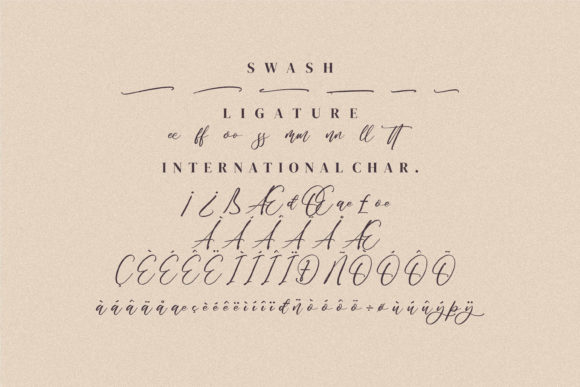 SWASH
LIGATURE
ee ff oo ss mm nn ll tt
INTERNATIONAL CHAR.
¡ ¿ ß Æ đ Œ æ £ œ
À Á Â Ã Ä Å Æ
Ç È É Ê Ë Ì Í Î Ï Đ Ñ Ò Ó Ô Õ
à á â ã å æ ç è é ê ë ì í î ï đ ñ ò ó ô õ ÷ ø ù ú û ý þ ÿ